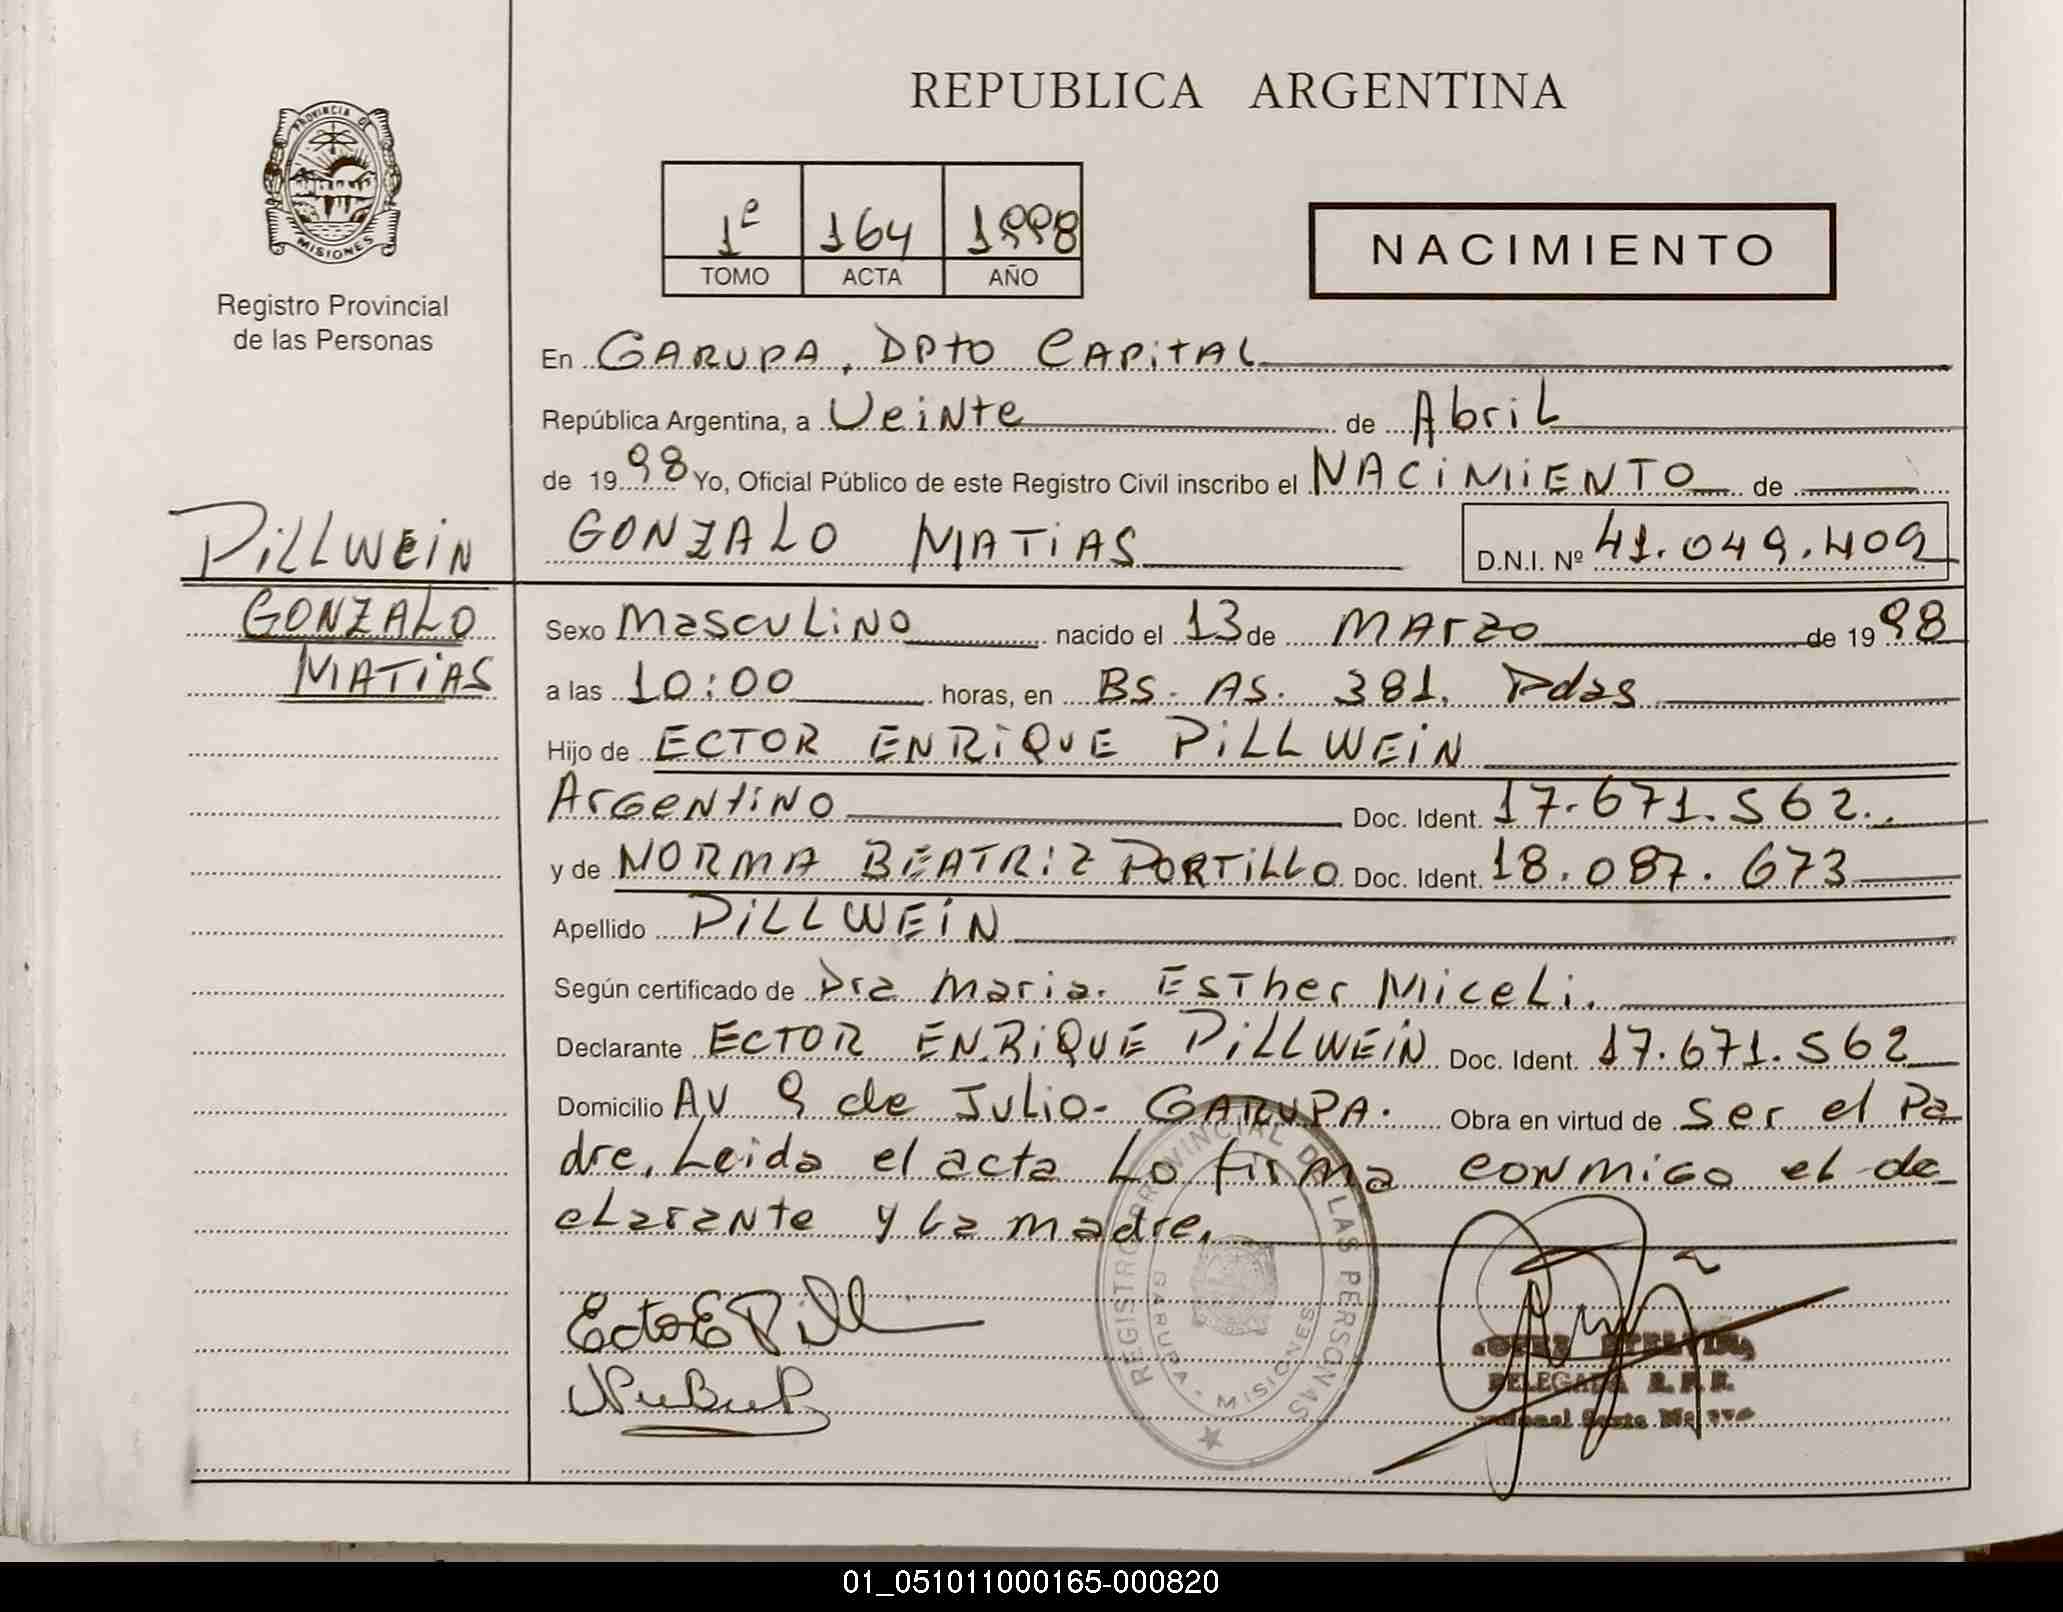 REPUBLICA ARGENTINA
PROVINCIA DE
MISIONES
Registro Provincial
de las Personas
1e 164 1998
TOMO ACTA AÑO
NACIMIENTO
En GARUPA, DPTO CAPITAL
República Argentina, a Veinte de Abril
de 1998 Yo, Oficial Público de este Registro Civil inscribo el NACIMIENTO de
GONZALO MATIAS D.N.I. Nº 41.049.409
PILLWEIN
GONZALO
MATIAS
Sexo Masculino nacido el 13 de MARZO de 1998
a las 10:00 horas, en BS. AS. 381. Pdas
Hijo de ECTOR ENRIQUE PILLWEIN
Argentino Doc. Ident. 17.671.562.
y de NORMA BEATRIZ PORTILLO Doc. Ident. 18.087.673
Apellido PILLWEIN
Según certificado de Dra Maria. Esther Miceli.
Declarante ECTOR ENRIQUE PILLWEIN Doc. Ident. 17.671.562
Domicilio AV 9 de Julio- GARUPA. Obra en virtud de ser el Pa
dre, Leida el acta Lo firma conmigo el de
clarante y la madre,
REGISTRO PROVINCIAL DE LAS PERSONAS
GARUPA - MISIONES
Ector E Pill
DELEGADA R. P. P.
01_051011000165-000820